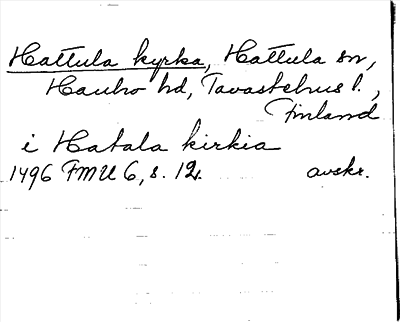 Hattula kyrka, Hattula sn,
Hauho hd, Tavastehus l.,
Finland
i Hatala kirkia
1496 FMU 6, s. 12. avskr.